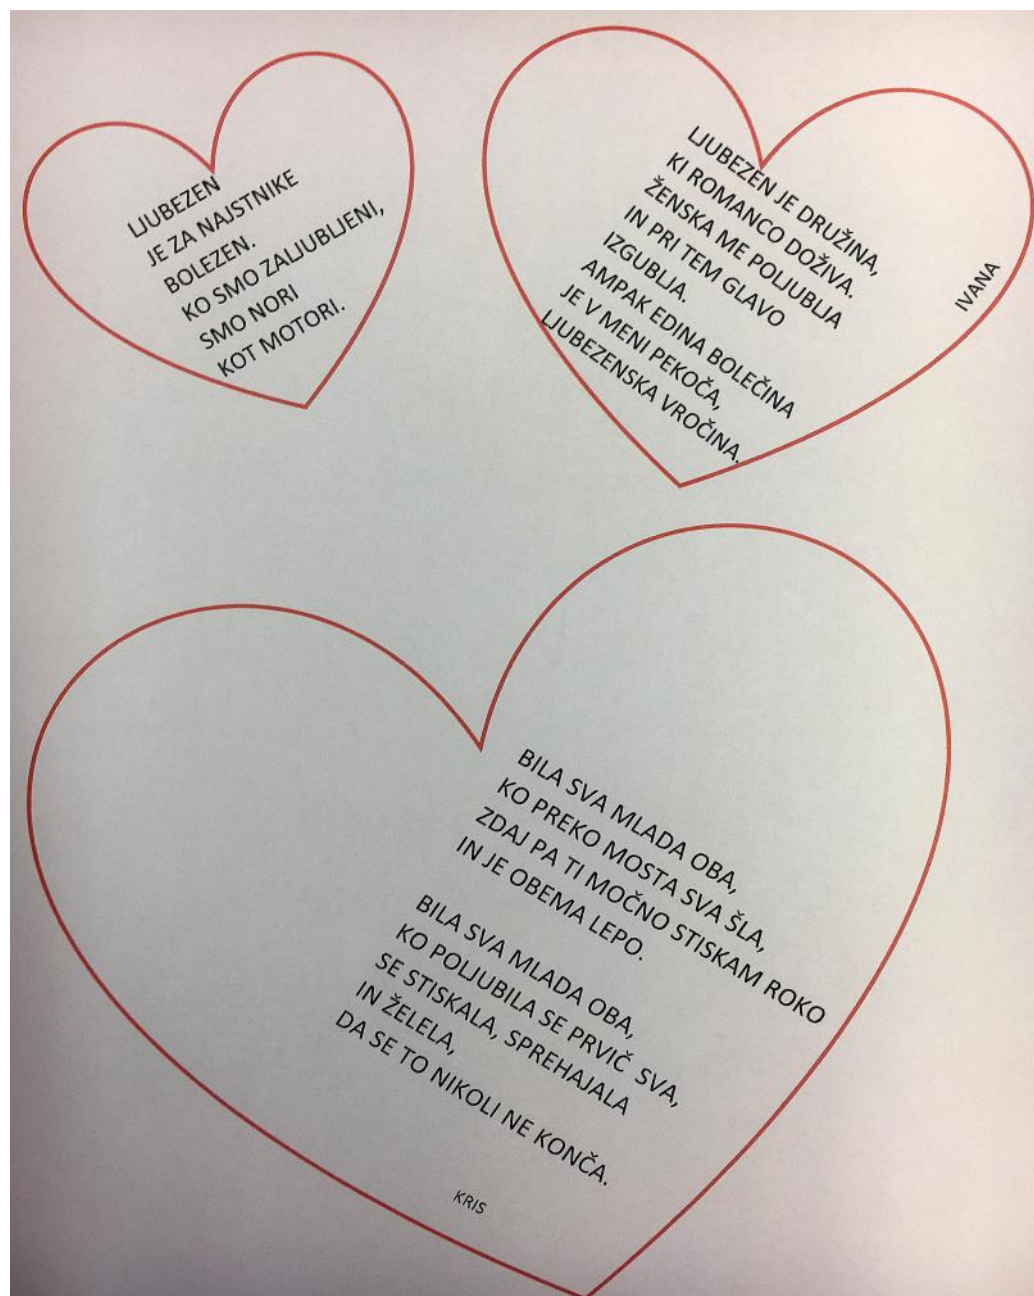 LJUBEZEN
JE ZA NAJSTNIKE
BOLEZEN.
KO SMO ZALJUBLJENI,
SMO NORI
KOT MOTORI.
LJUBEZEN JE DRUŽINA,
KI ROMANCO DOŽIVA.
ŽENSKA ME POLJUBLJA
IN PRI TEM GLAVO
IZGUBLJA.
AMPAK EDINA BOLEČINA
JE V MENI PEKOČA,
LJUBEZENSKA VROČINA.
IVANA
BILA SVA MLADA OBA,
KO PREKO MOSTA SVA ŠLA,
ZDAJ PA TI MOČNO STISKAM ROKO
IN JE OBEMA LEPO.
BILA SVA MLADA OBA,
KO POLJUBILA SE PRVIČ SVA,
SE STISKALA, SPREHAJALA
IN ŽELELA,
DA SE TO NIKOLI NE KONČA.
KRIS